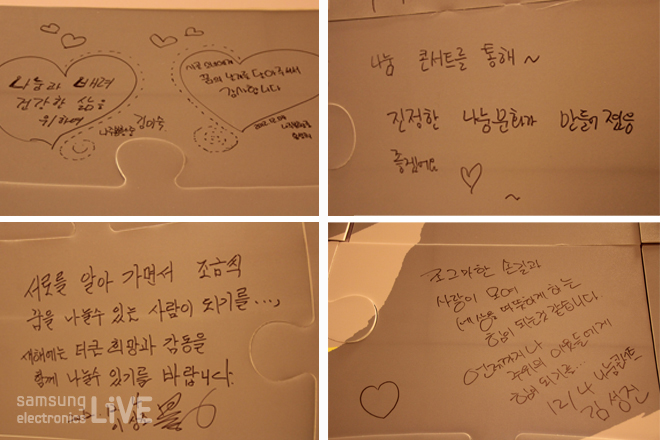 나눔과 배려
건강한 삶을
위하여
김미숙
꿈의 날개를 달아주셔서
감사합니다
2012.12.04
나눔 콘서트를 통해~
진정한 나눔문화가 만들어 졌음
좋겠어요 ♡ ~
서로를 알아 가면서 조금씩
나눌수 있는 사람이 되기를...,
새해에는 더큰 희망과 감동을
함께 나눌수 있기를 바랍니다.
조그마한 손길과
사랑이 모여
세상을 따뜻하게 하는
힘이 되는것 같습니다
언제까지나
주위의 이웃들에게
되기를...
12/4 나눔콘서트
김성진
samsung
electronics LiVE